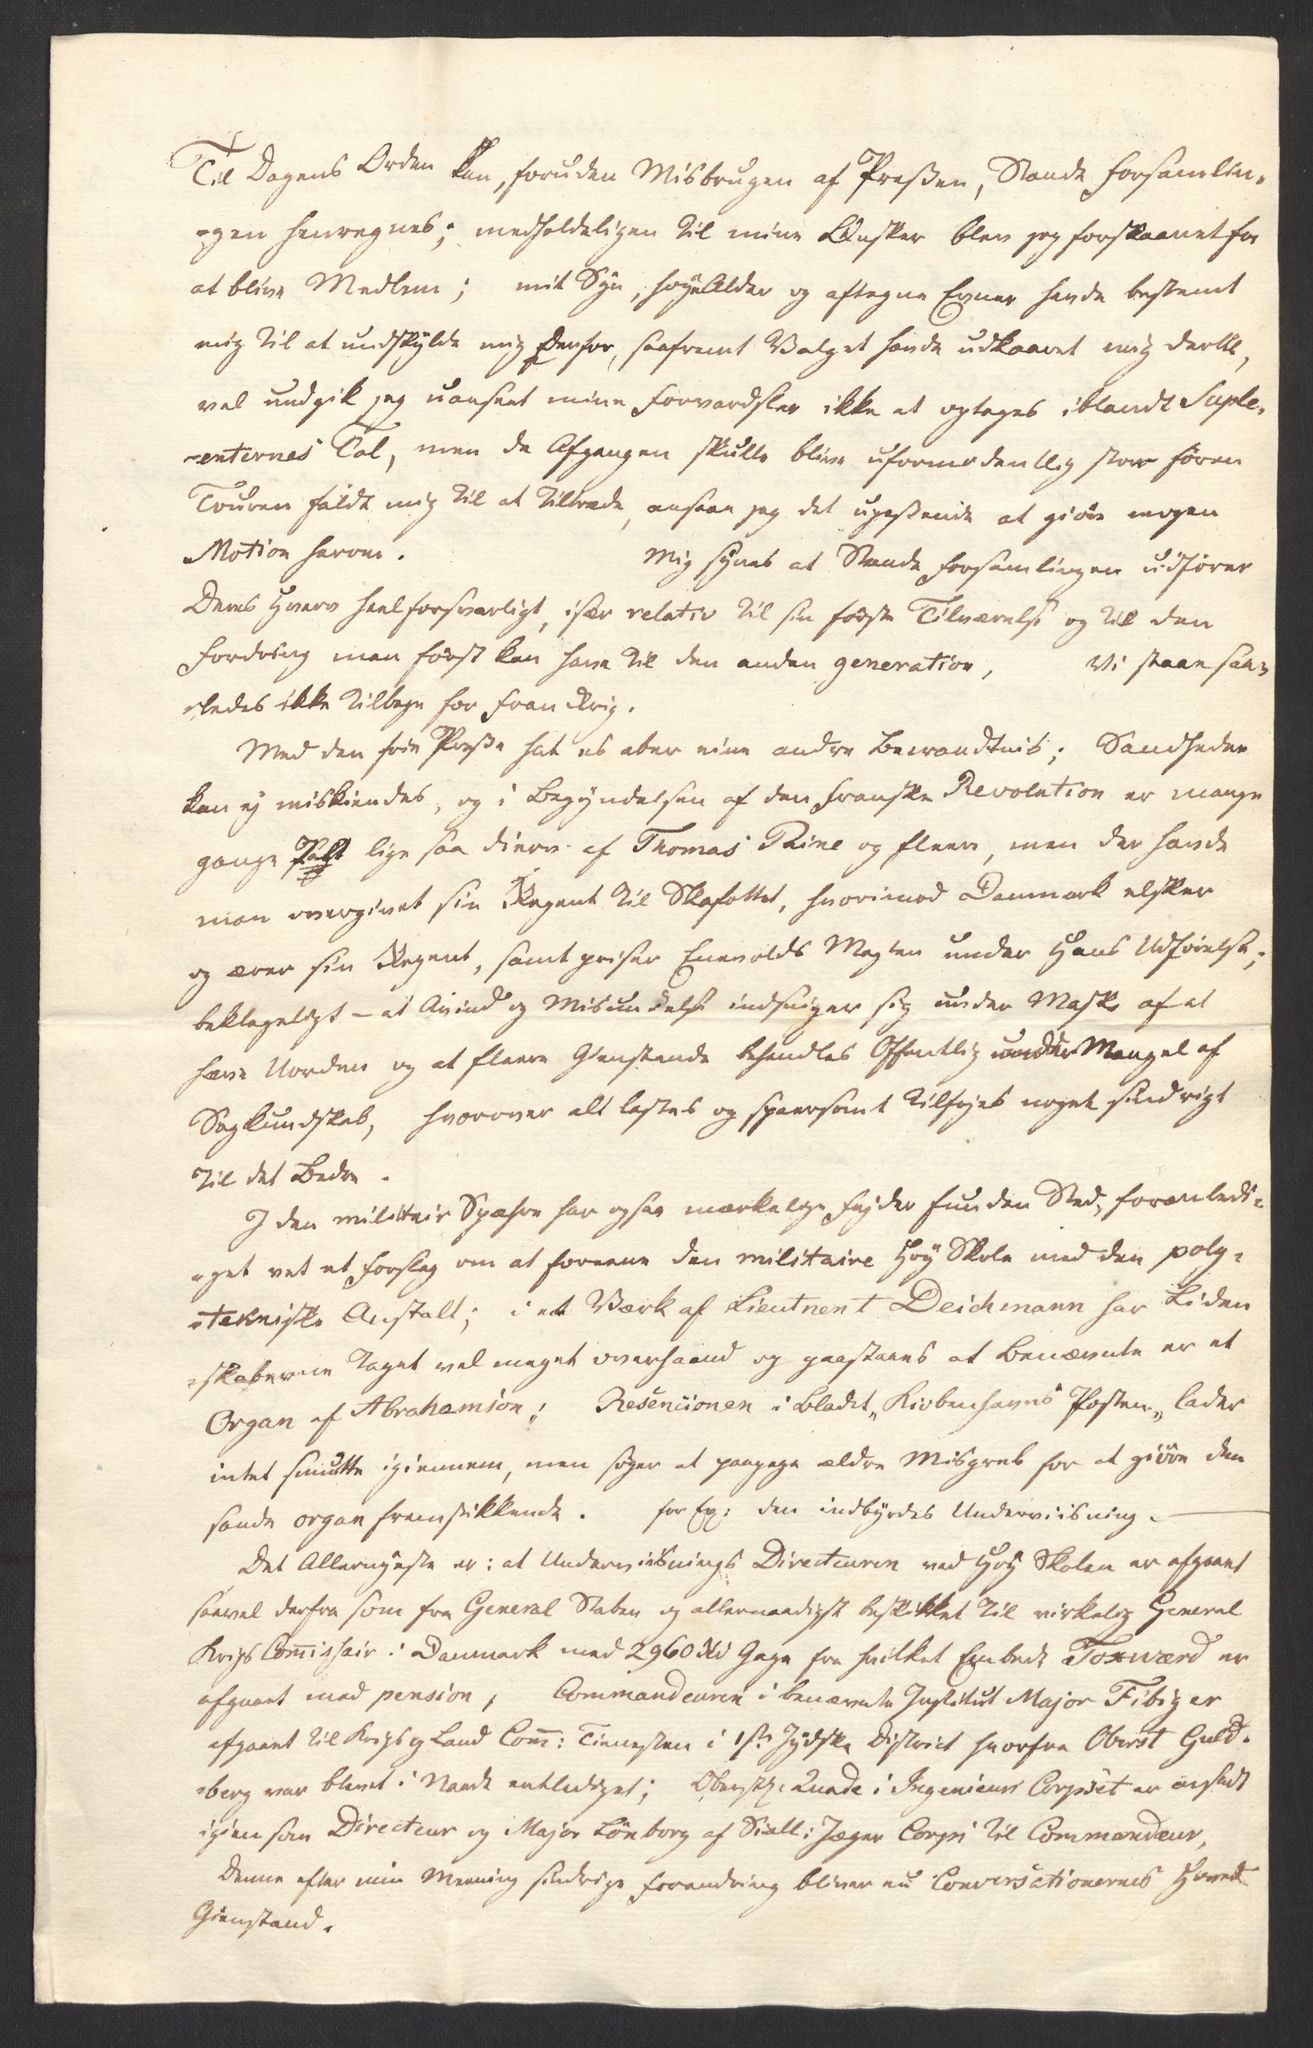 Til Dagens Orden kan, foruden Misbrugen af Pressen, Stænde Forsamlin-
-gen henregnes; medholdeligen til mine Ønsker blev jeg forskaanet for
at blive Medlem; mit Syn, høye Alder og aftagne Evner havde bestemt
mig til at undskylde mig derfor, saafremt Valget havde udkaaret mig dertil,
vel undgik jeg uanseet mine Forvardsler ikke at optages iblandt Suple-
-enternes Tal, men da Afgangen skulle blive uformodentlig stor føren
Touren faldt mig til at tiltræde, ansaae jeg det upassende at giøre nogen
Motion herom. Mig synes at Stænde Forsamlingen udfører
Deres Hverv heel forsvarligt, især relativ til sin første Tilværelse og til den
Fordring man først kan have til den anden generation, Vi staae saa-
-ledes ikke tilbage for Frankrig.
Med den frie Presse hat es aber eine andre Bewandtnis; Sandheder
kan ej miskiendes, og i Begyndelsen af den franske Revolution er mange
gange sagt lige saa dierv af Thomas Paine og fleere, men der havde
man overgivet sin Regent til Skafottet, hvorimod Danmark elsker
og ærer sin Regent, samt priser Enevolds Magten under Hans Udførelse;
beklageligt – at Avind og Misundelse indsniger sig under Maske af at
hæve Uorden og at fleere Gienstande behandles Offentlig under Mangel af
Sagkundskab, hvorover alt lastes og sparsomt tilføjes noget sindrigt
til det Bedre.
I den militair Sphæhre har ogsaa mærkelige Fejder funden Sted, foranledi-
-get ved et Forslag om at foreene den militaire Høy Skole med den poly-
-tekniske Anstalt; i et Værk af Lieutnent Deichmann har Liden
-skaberne taget vel meget overhaand og paastaaes at Benævnte er et
Organ af Abrahamson; Resencionen i Bladet „Kiøbenhavns Posten„ lader
intet smutte igiennem, men søger at paapege ældre Misgreb for at giøre den
sande organ fremstikkende. for Ex: den indbyrdes Underviisning. —
Det Allernyeste er: at Underviisnings Directeuren ved Høy Skolen er afgaaet
saavel derfra som fra General Staben og allernaadigst beskikket til virkelig General
Krigs Commissair i Danmark med 2960 Rd Gage fra hvilket Embede Toxwærd er
afgaaet med pension, Commandeuren i benævnte Institut Major Fibiger
afgaaet til Krigs og Land Comm: Tienesten i 1ste Jydske District hvorfra Oberst Guld-
-berg var blevet i Naade entlediget; Obrstl: Quade i Ingenieur Corpset er ansadt
igien som Directeur og Major Lønborg af Siæll: Jæger Corps til Commandeur,
Denne efter min Meening sindrige Forandring bliver nu Conversationernes Hoved
Gienstand.